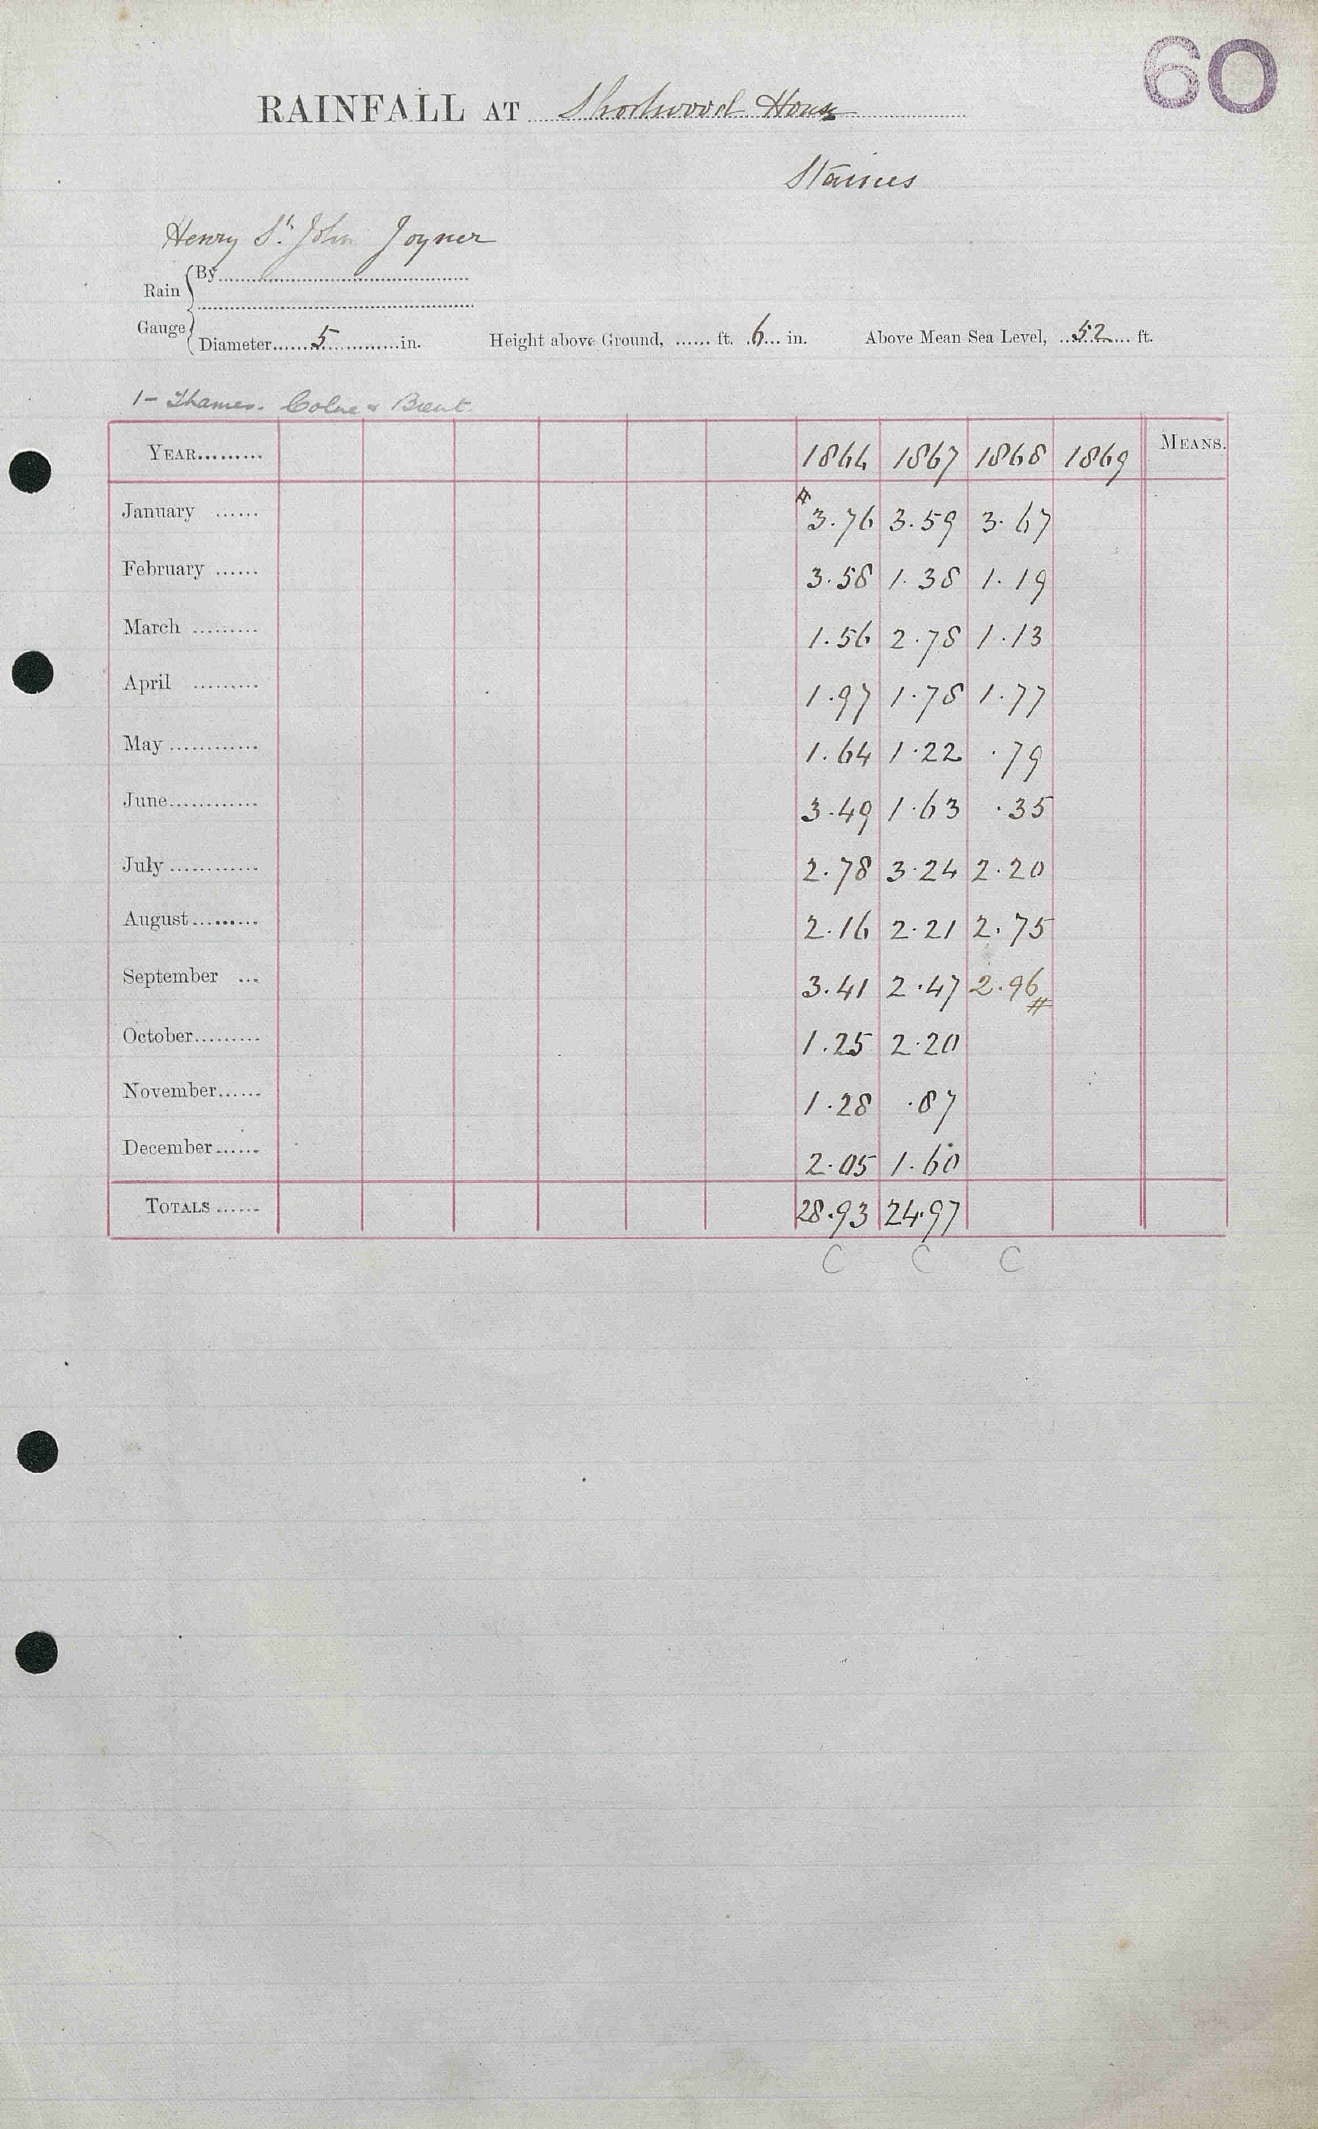 60
RAINFALL AT Shortwood House
Staines
Henry St. John Joyner
Rain Gauge
By
Diameter 5 in. Height above Ground, ft. 6 in. Above Mean Sea Level, 52 ft.
1 - Thames. Colne & Brent.
YEAR 1866 1867 1868 1869 MEANS.
January # 3.76 3.59 3.67
February 3.58 1.38 1.19
March 1.56 2.78 1.13
April 1.97 1.78 1.77
May 1.64 1.22 .79
June 3.49 1.63 .35
July 2.78 3.24 2.20
August 2.16 2.21 2.75
September 3.41 2.47 2.96 #
October 1.25 2.20
November 1.28 .87
December 2.05 1.60
TOTALS 28.93 24.97
C C C